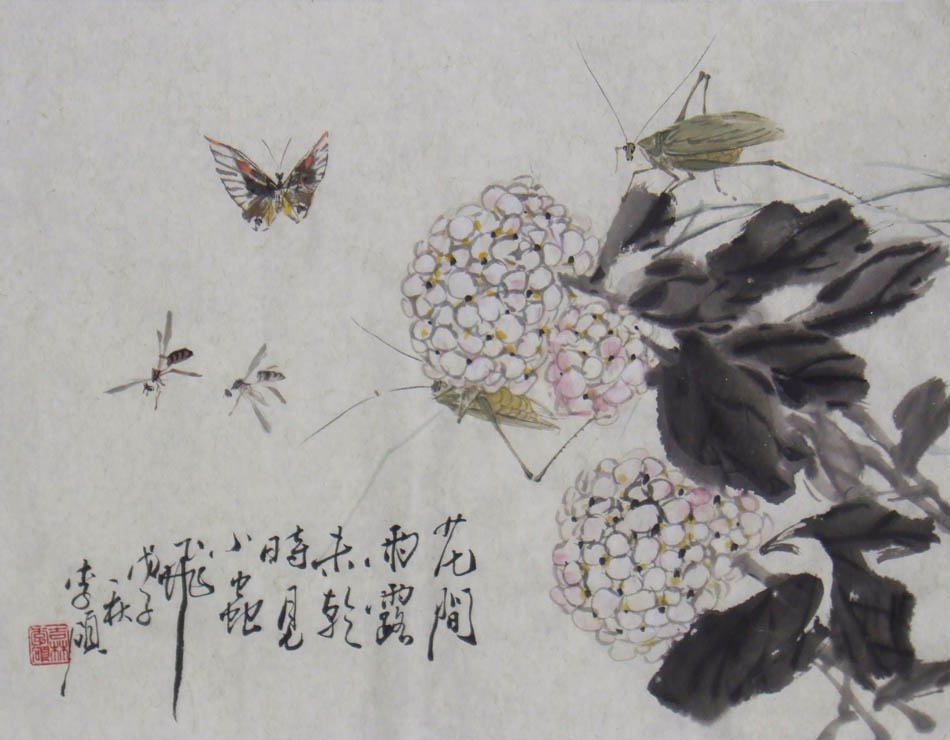 花間
雨露
未乾
時見
小蟲
飛
戊子
秋
李頌